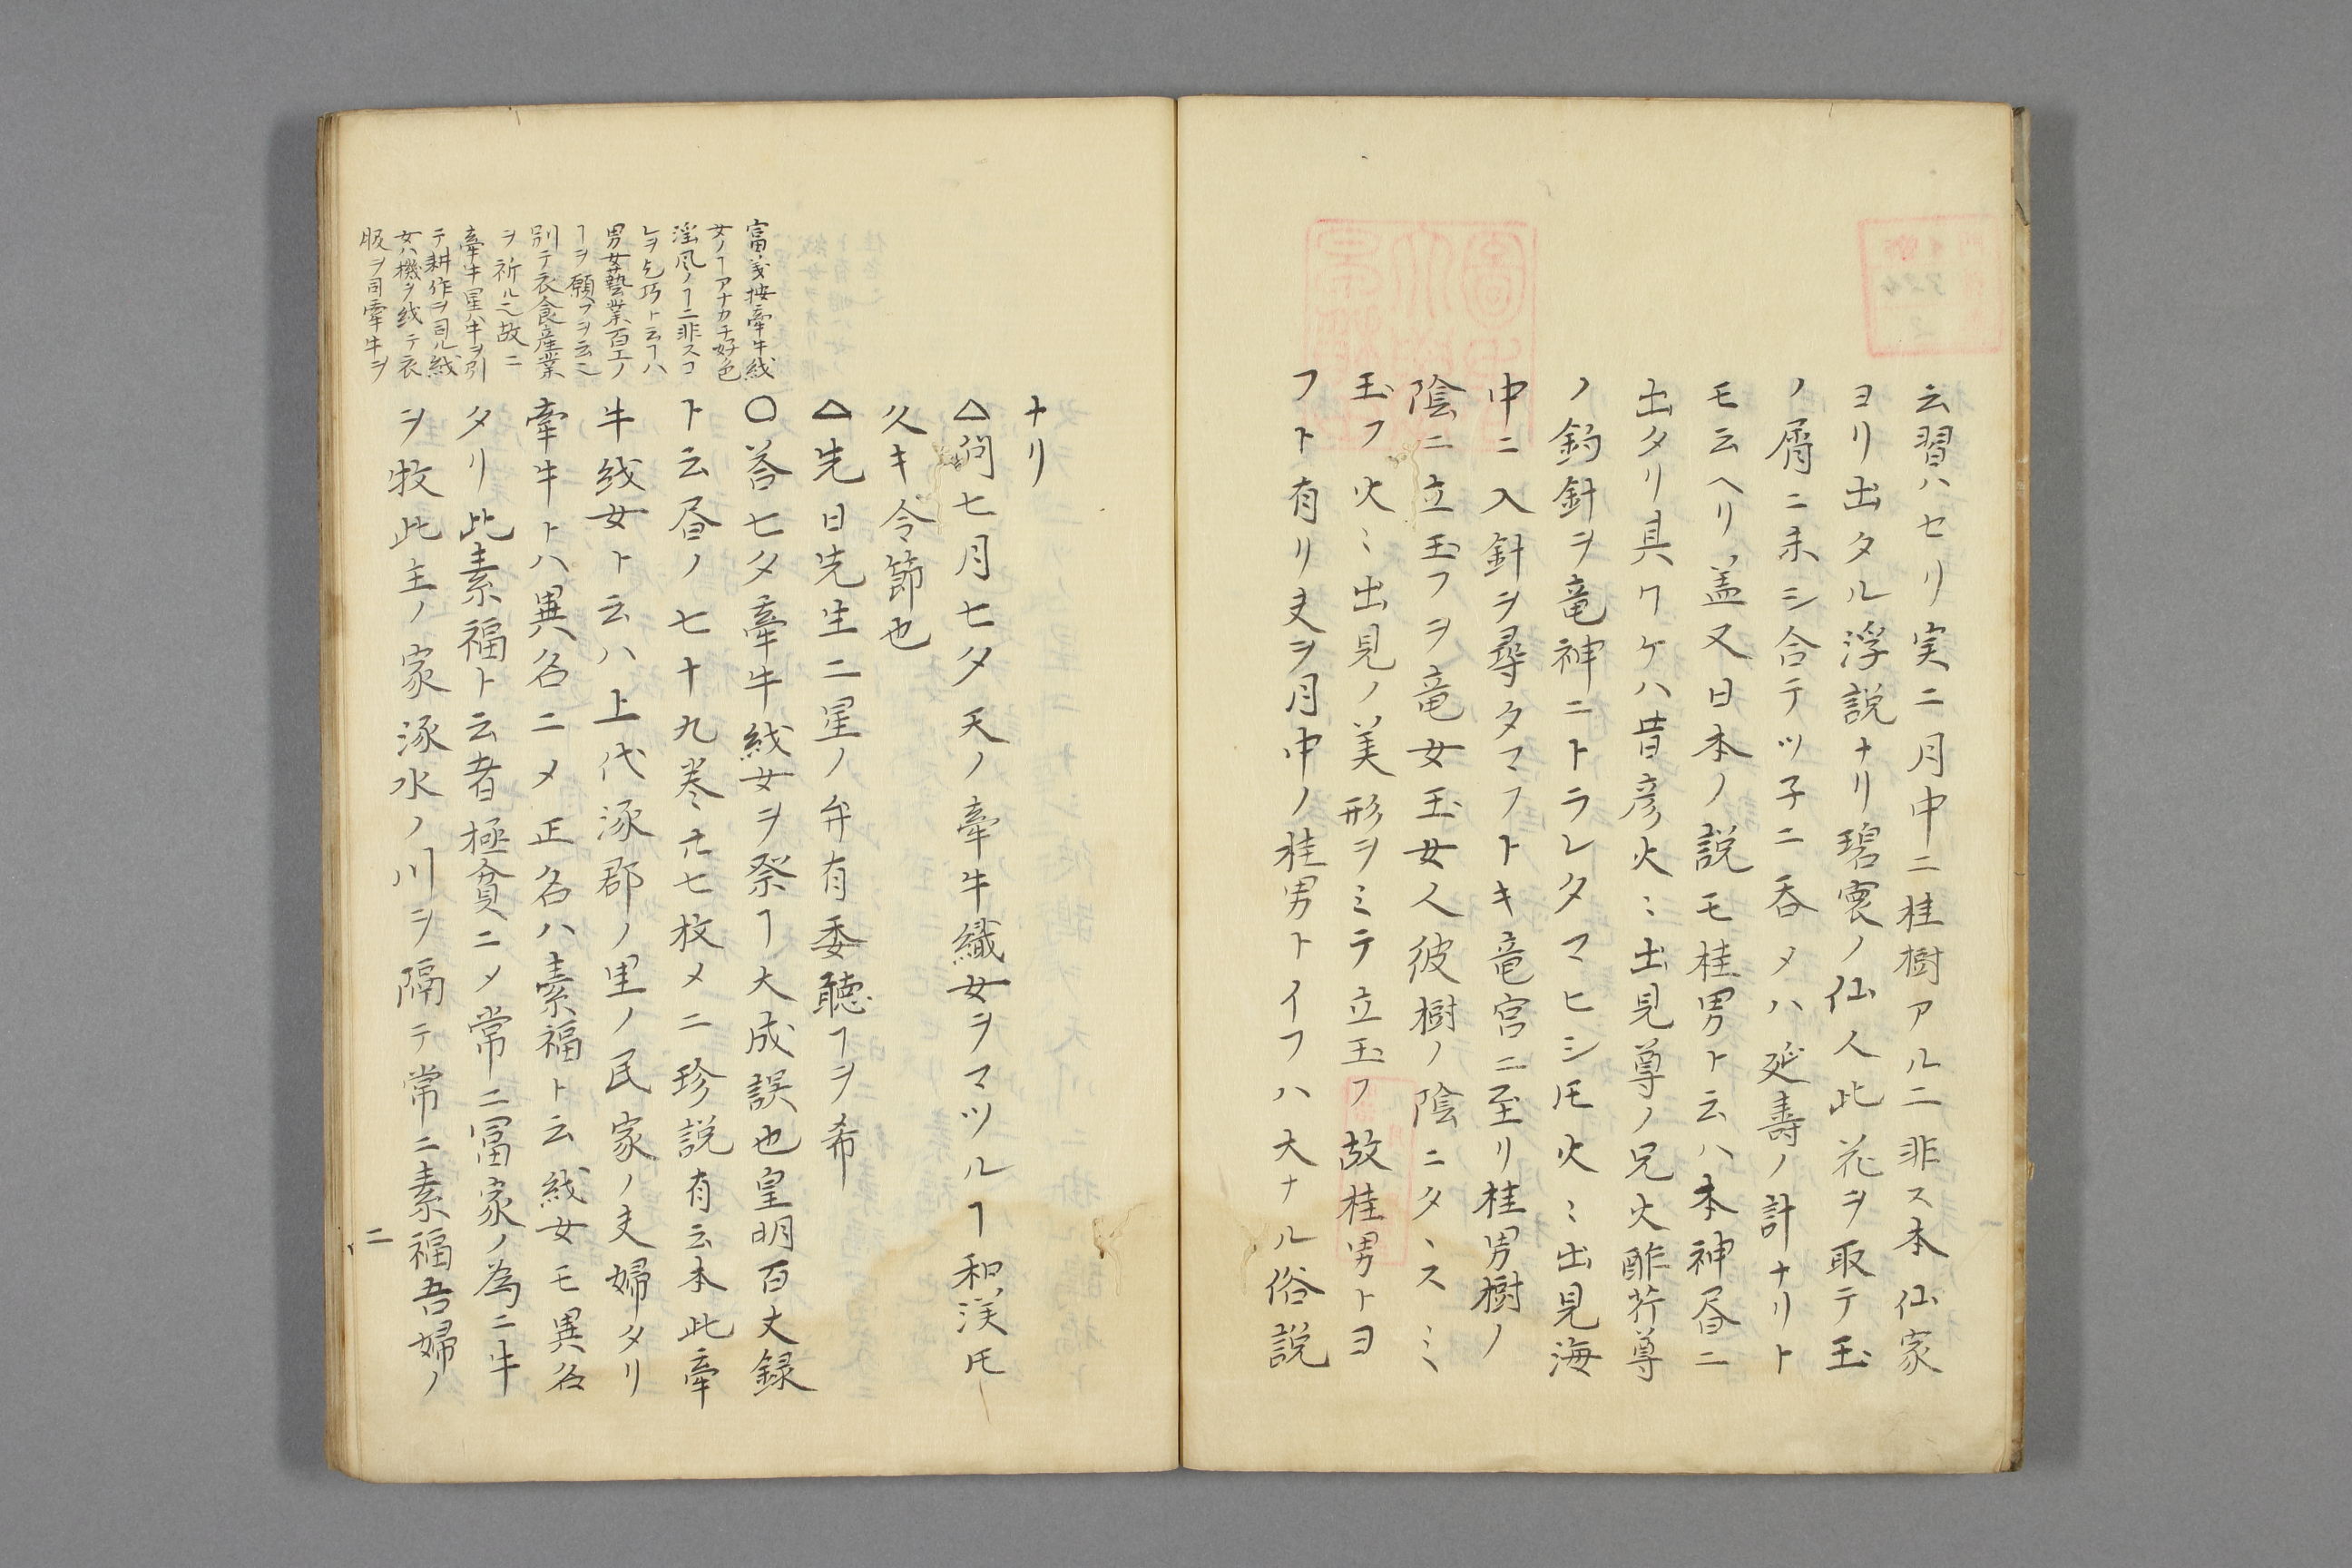 云習ハセリ実ニ月中ニ桂樹アルニ非ス本仙家
ヨリ出タル浮説ナリ碧霄ノ仙人此花ヲ取テ玉
ノ屑ニ糸シ合テツ子ニ呑メハ延壽ノ計ナリト
モ云ヘリ蓋又日本ノ説モ桂男ト云ハ本神昼ニ
出タリ具ワケハ昔彦火〻出見尊ノ兄火酢芹尊
ノ釣針ヲ竜神ニトラレタマヒシ𪜈火〻出見海
中ニ入針ヲ尋タマフトキ竜宮ニ至リ桂男樹ノ
陰ニ立玉フヲ竜女玉女人彼樹ノ陰ニタヽスミ
玉フ火〻出見ノ美形ヲミテ立玉フ故桂男トヨ
フト有リ夫ヲ月中ノ桂男トイフハ大ナル俗説
ナリ
△問七月七夕天ノ牽牛織女ヲマツルヿ和漢𪜈
久キ令節也
△先日先生二星ノ弁有委聴ヿヲ希
〇答七夕牽牛綫女ヲ祭ヿ大成誤也皇明百丈録
ト云昼ノ七十九巻廿七枚メニ珍説有云本此牽
牛綫女ト云ハ上代涿郡ノ里ノ民家ノ夫婦タリ
牽牛トハ異名ニメ正名ハ素福ト云綫女モ異名
タリ此素福ト云者極貧ニメ常ニ冨家ノ為ニ牛
ヲ牧此主ノ家涿水ノ川ヲ隔テ常ニ素福吾婦ノ
富義按牽牛綫
女ノヿアナカチ好色
淫風ノヿニ非スコ
レヲ乞巧ト云ヿハ
男女藝業百工ノ
ヿヲ願フヲ云ニ
別テ衣食産業
ヲ祈ル也故ニ
牽牛星ハ牛ヲ引
テ耕作ヲ司ル綫
女ハ機ヲ綫テ衣
服ヲ司牽牛ヲ
二